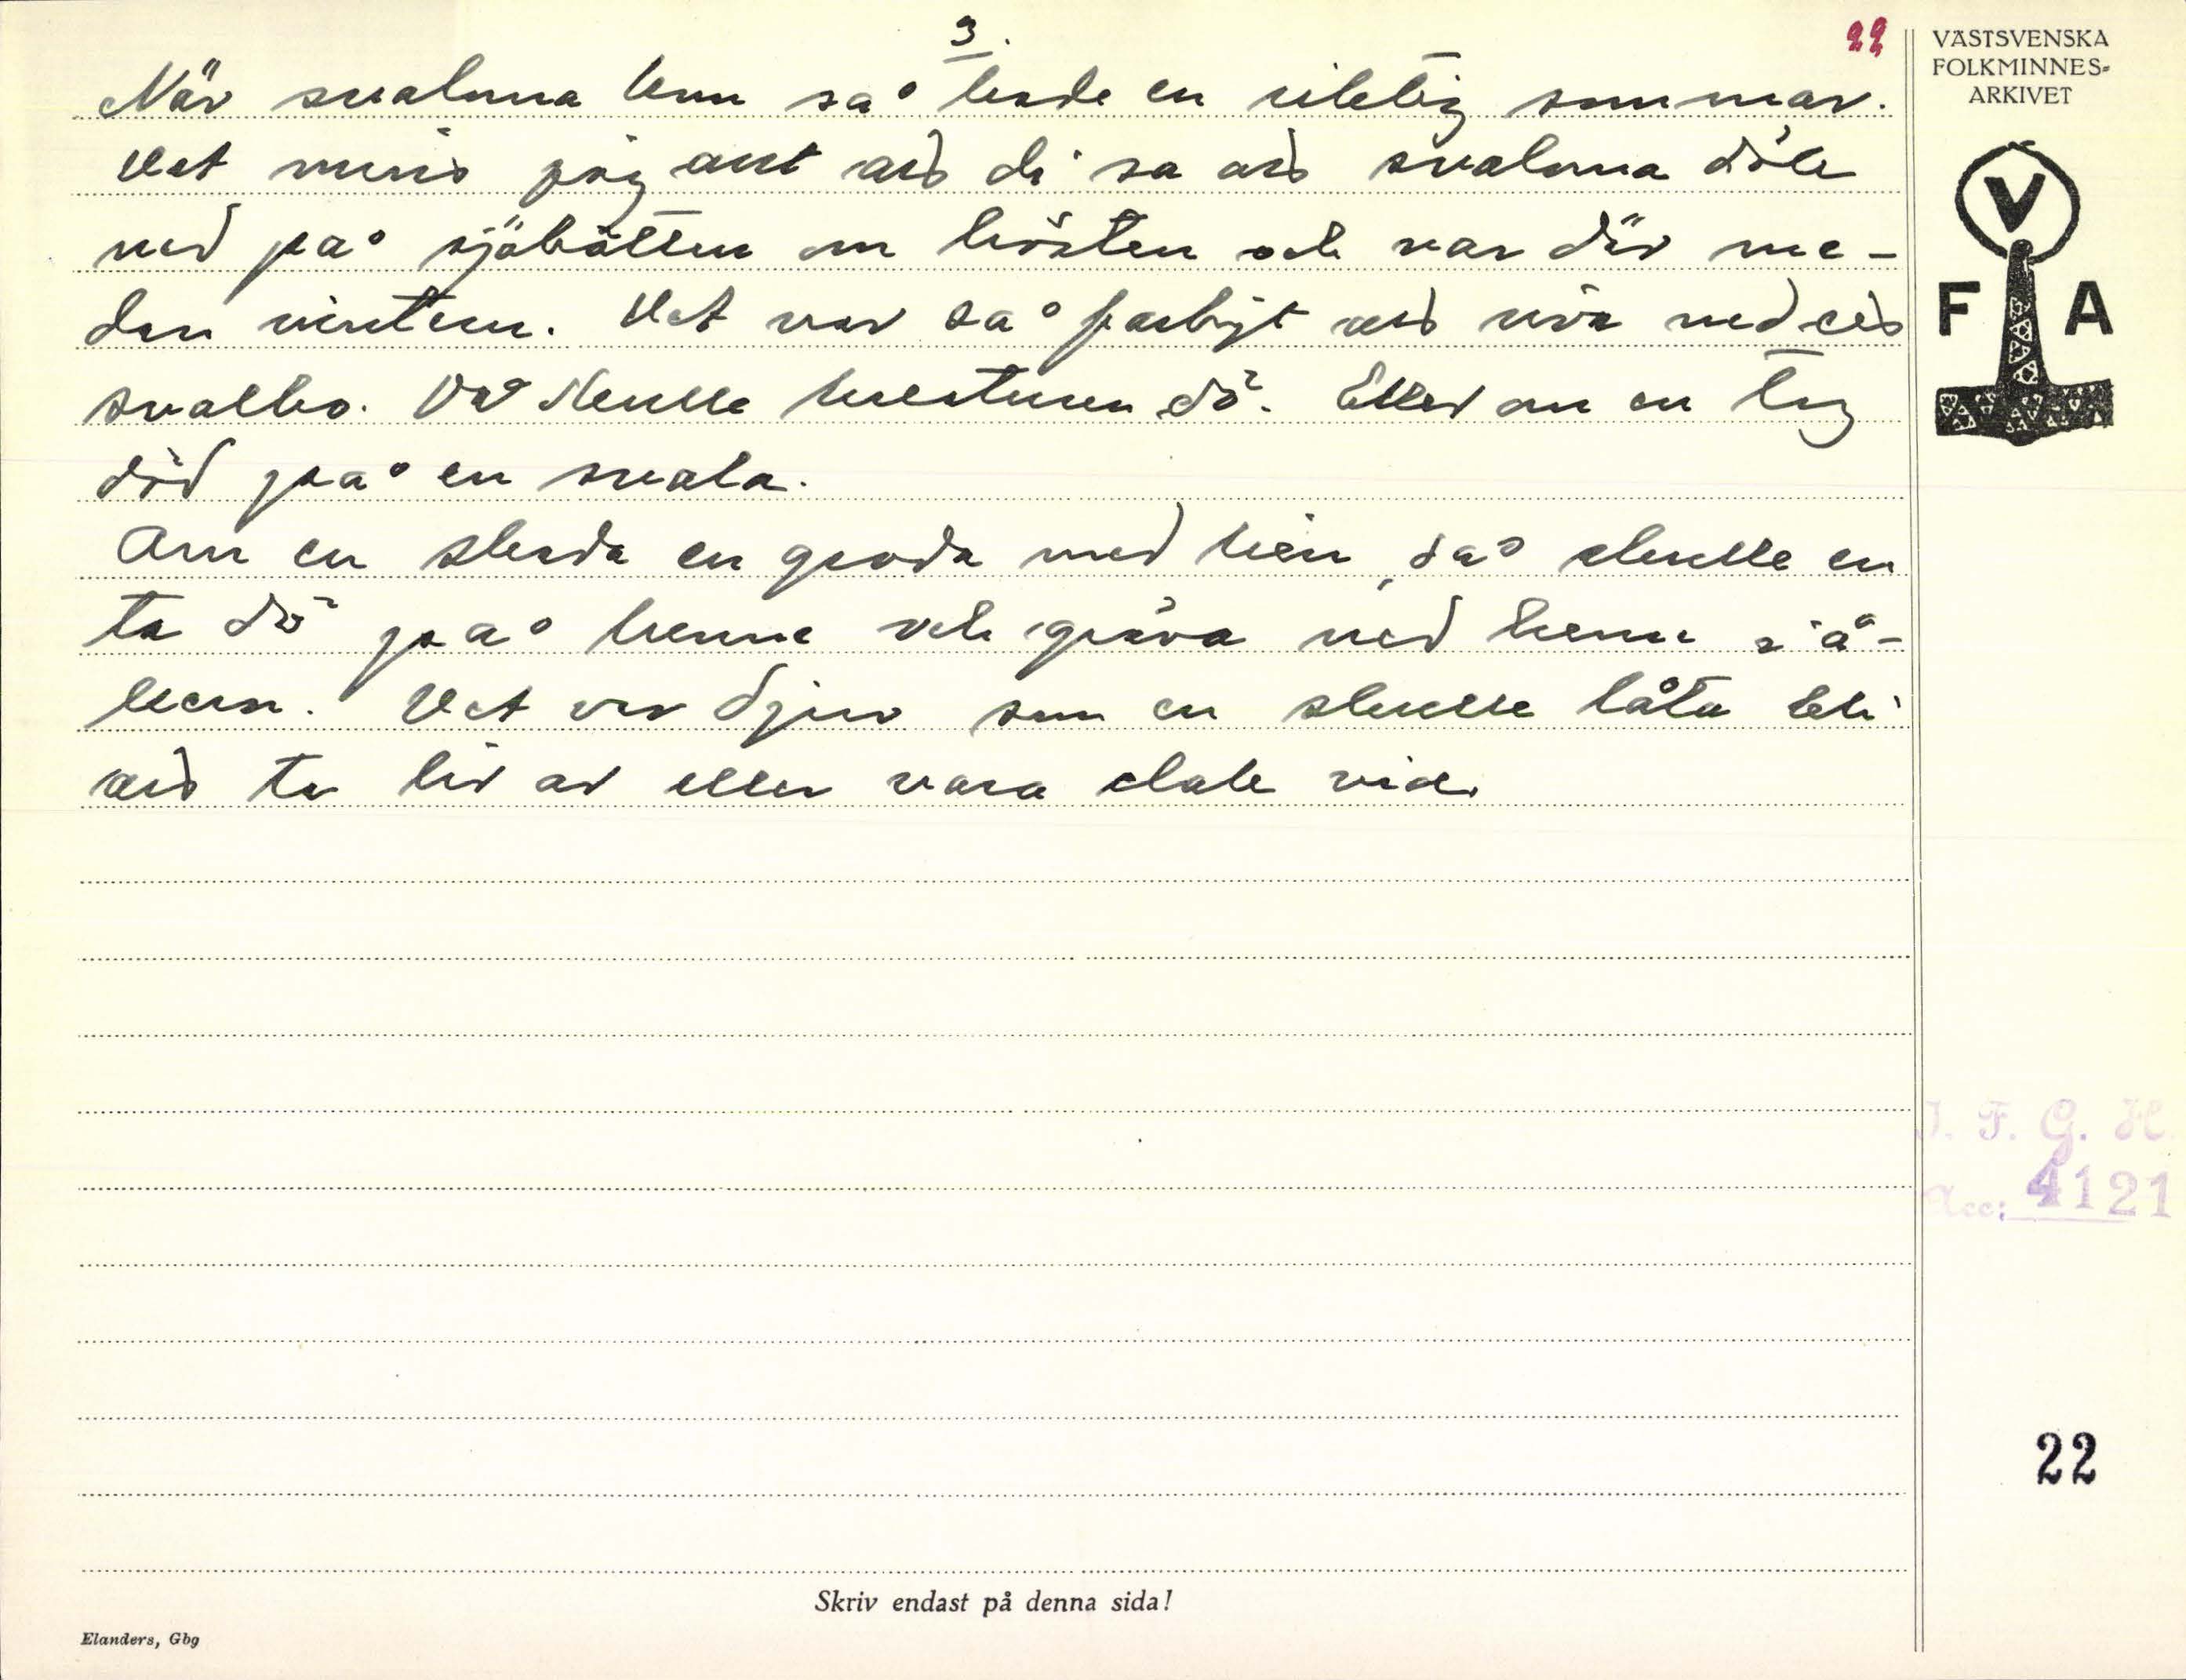 3.
22
När svalorna kom så hade en riktig sommar.
Det minns jag att di sa att svalorna dök
ned på sjöbotten om hösten och var där me-
dan vintern. Det var så farligt att riva ned ett
svalbo. Då skulle kreaturen dö. Eller om en tog
död på en svala.
Om en skada en groda med lien, då skulle en
ta dö på henne och gräva ned henne i å-
kern. Det var djur som en skulle låta bli
att ta liv av eller vara elak vid.
VÄSTSVENSKA
FOLKMINNES-
ARKIVET
V
F A
I. F. G. H.
Acc: 4121
22
Skriv endast på denna sida!
Elanders, Gbg